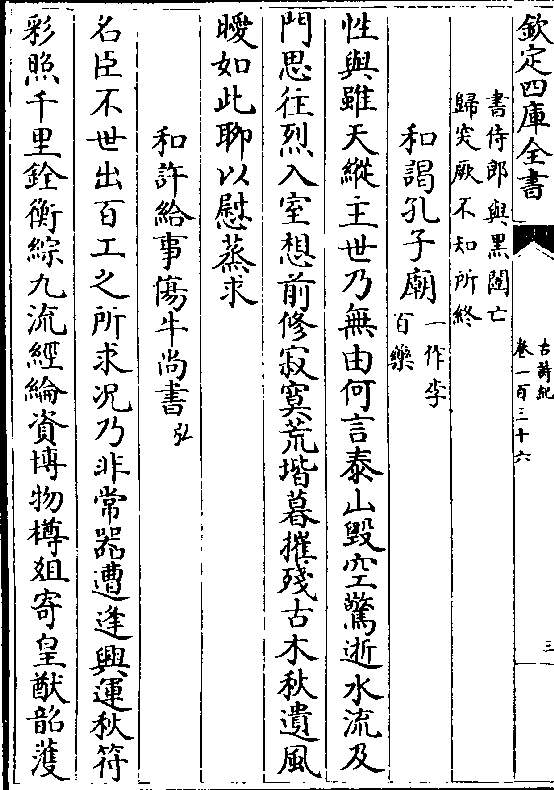 欽定四庫全書
古詩紀
卷一百三十六
三
書侍郎與黑闥亡
歸突厥不知所終
和謁孔子廟一作李百藥
性與雖天縱主世乃無由何言泰山毀空驚逝水流及
門思往烈入室想前修寂寞荒堦暮摧殘古木秋遺風
曖如此聊以慰蒸求
和許給事傷牛尚書弘
名臣不世出百工之所求况乃非常器遭逢興運秋符
彩照千里銓衡綜九流經綸資博物樽俎寄皇猷韶頀